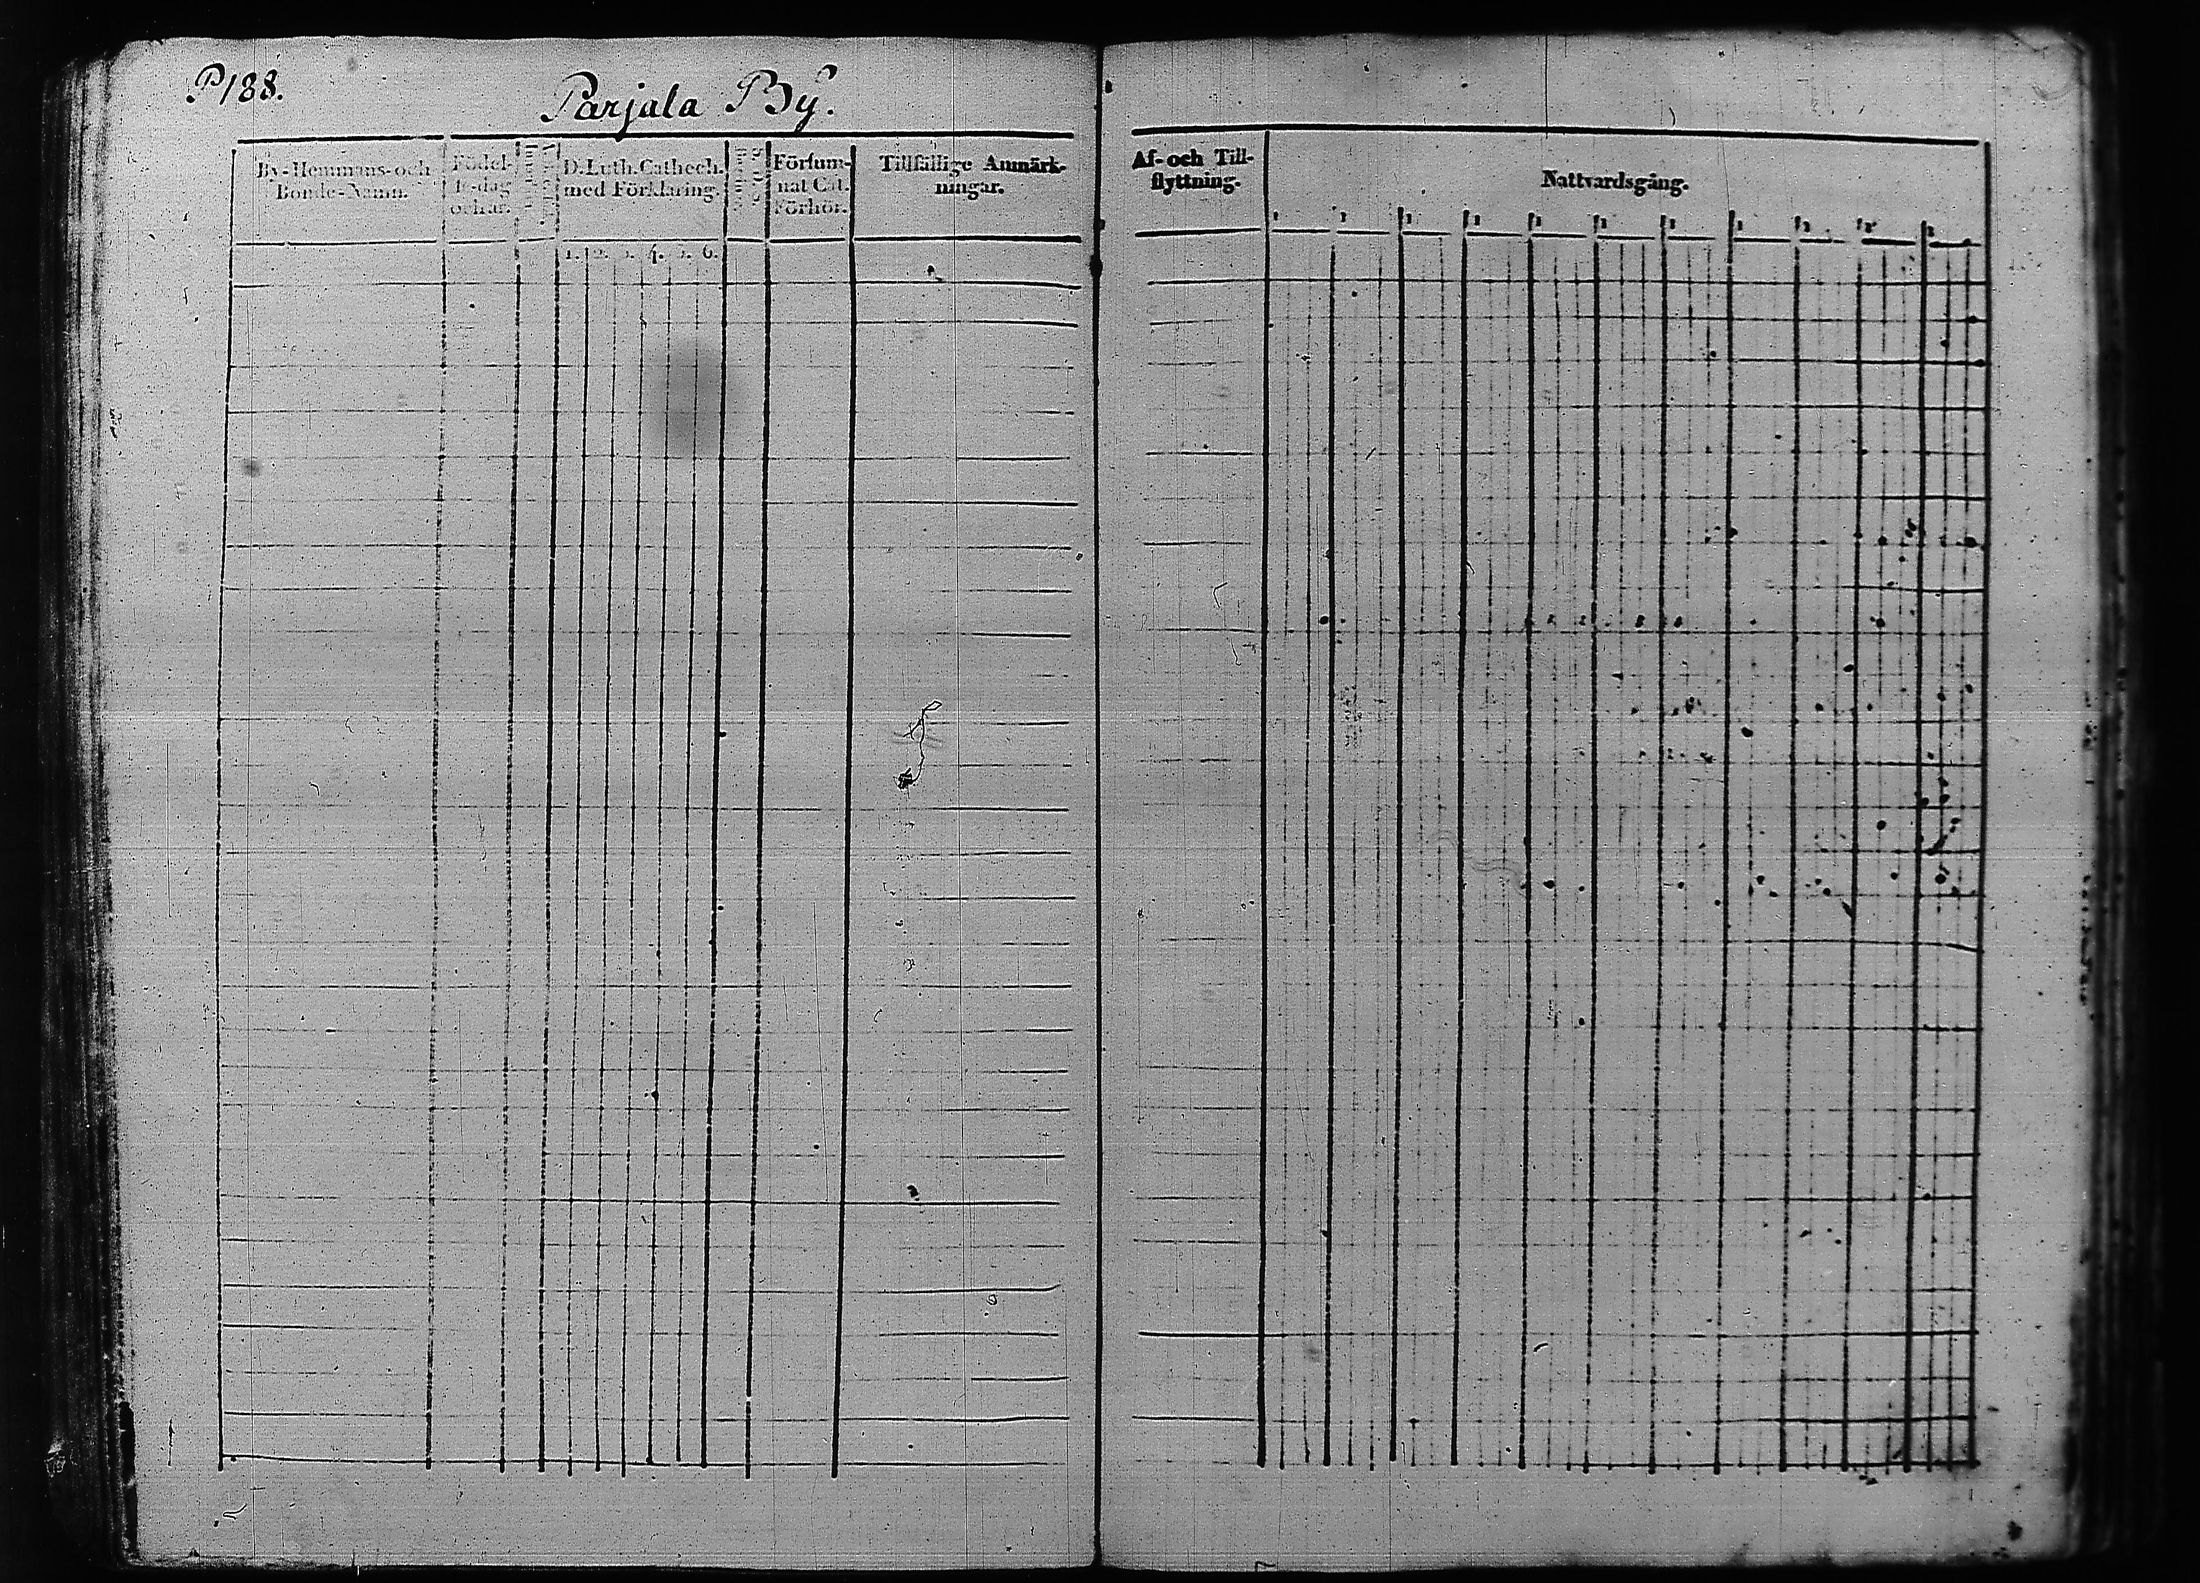 P 188.
Parjala By.
By-Hemmans-och
Bonde-Namn.
Födel-
se-dag
och år.
D. Luth. Cathech.
med Förklaring.
1. 2. 3. 4. 5. 6.
Försum-
nat Cat.
Förhör.
Tillfällige Anmärk-
ningar.
Af- och Till-
flyttning.
Nattvardsgång.